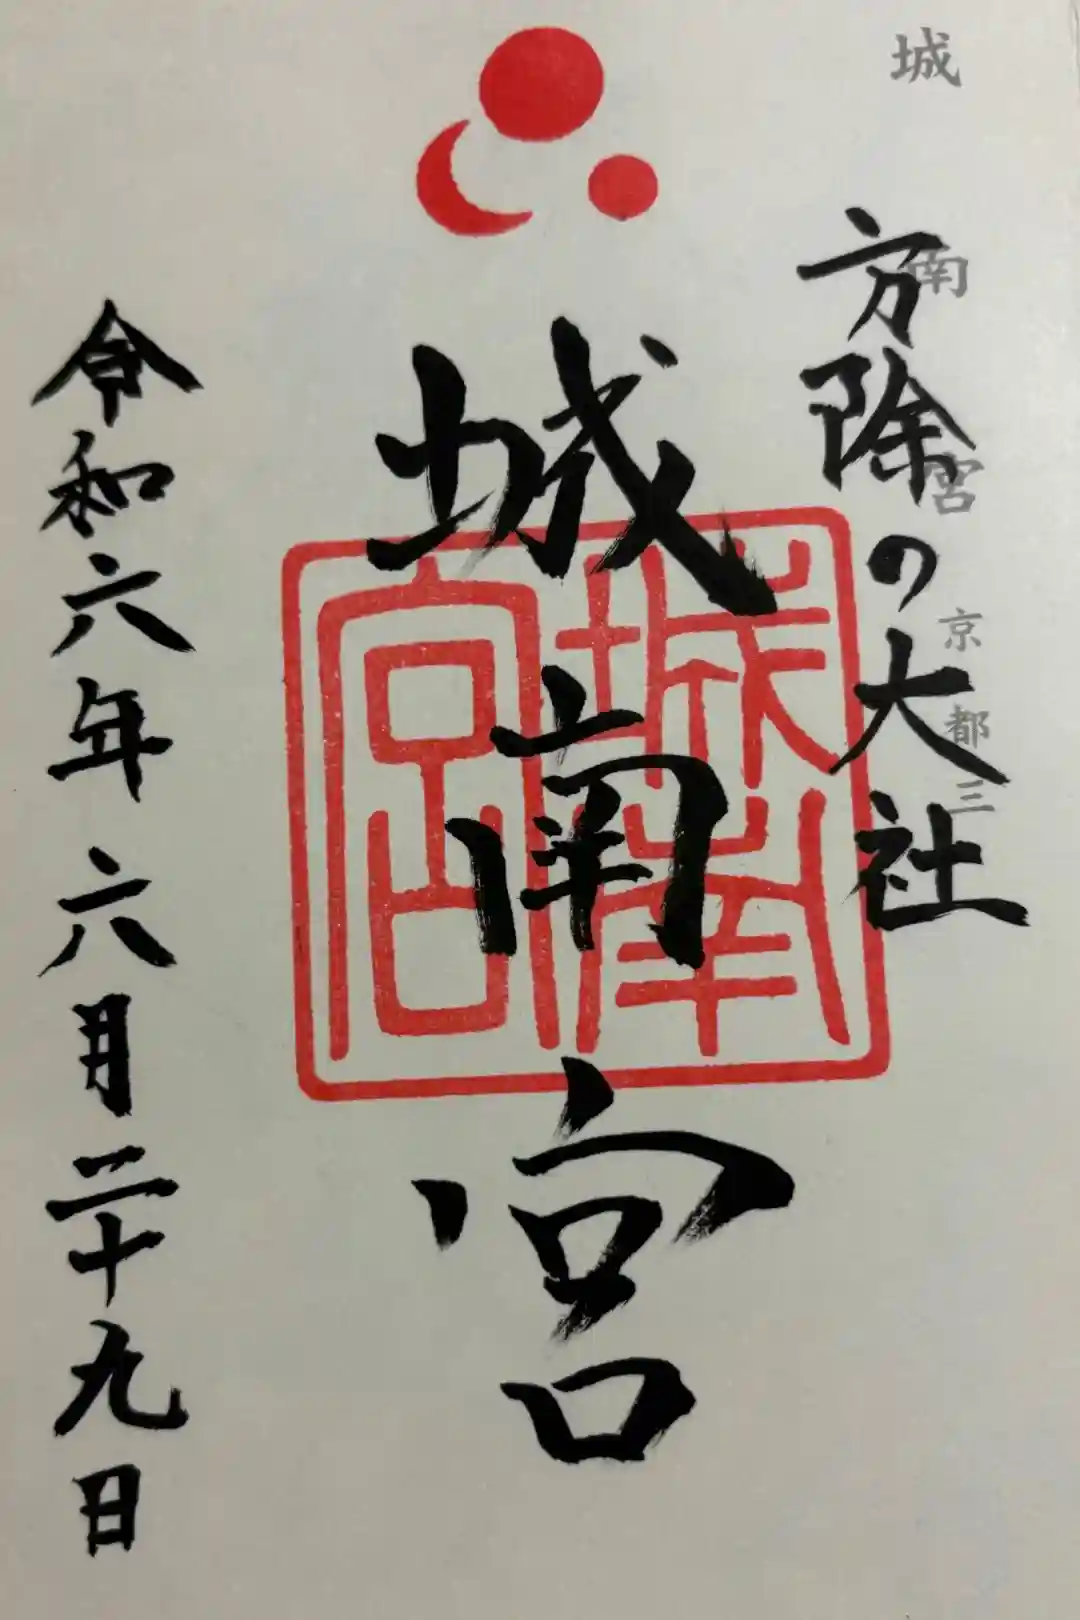 城南宮 京都三
方除の大社
城南宮
城南宮
令和六年六月二十九日